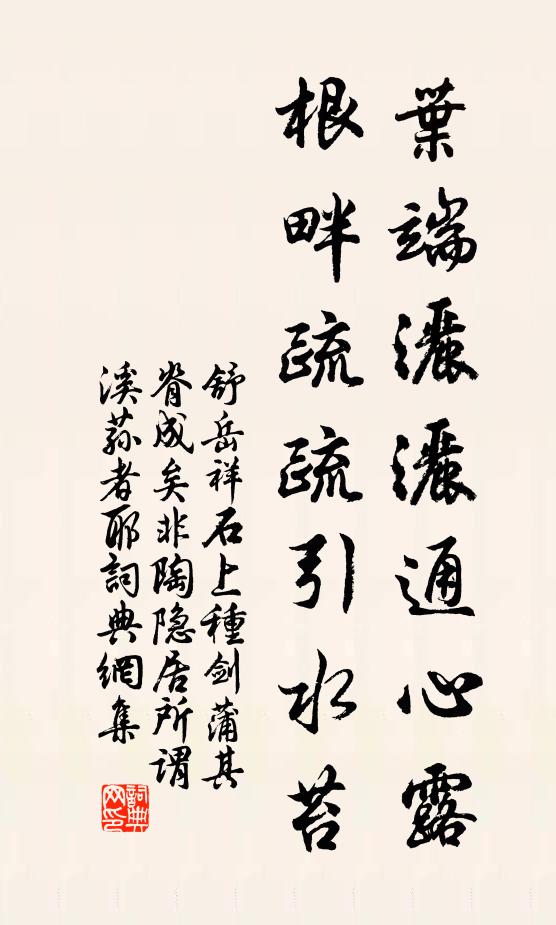 葉端灑灑通心露
根畔疏疏引水苔
舒岳祥石上種劍蒲其
脊成矣非陶隐居所谓
溪荪者耶詞典網集
詞典网印